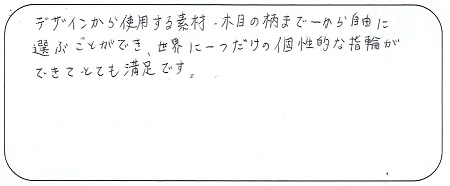 デザインから使用する素材・木目の柄まで一から自由に
選ぶことができ、世界に一つだけの個性的な指輪が
できてとても満足です。